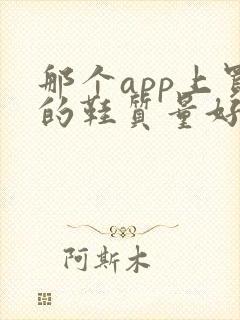 那个app上买
的鞋质量好
阿斯木